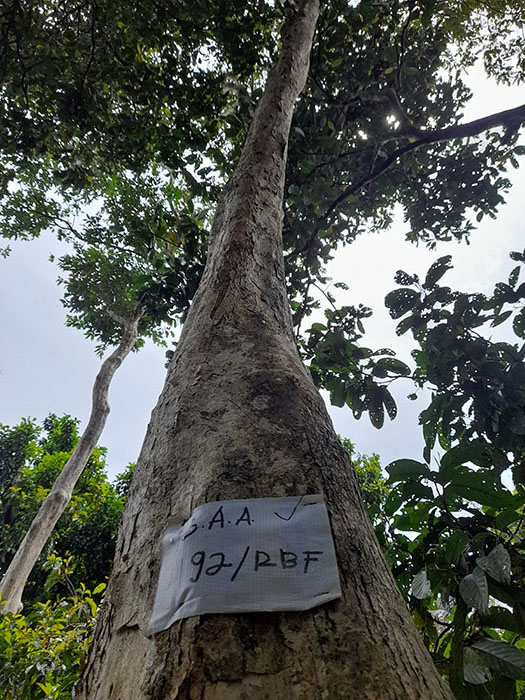 S.A.A. ✓
92/RBF